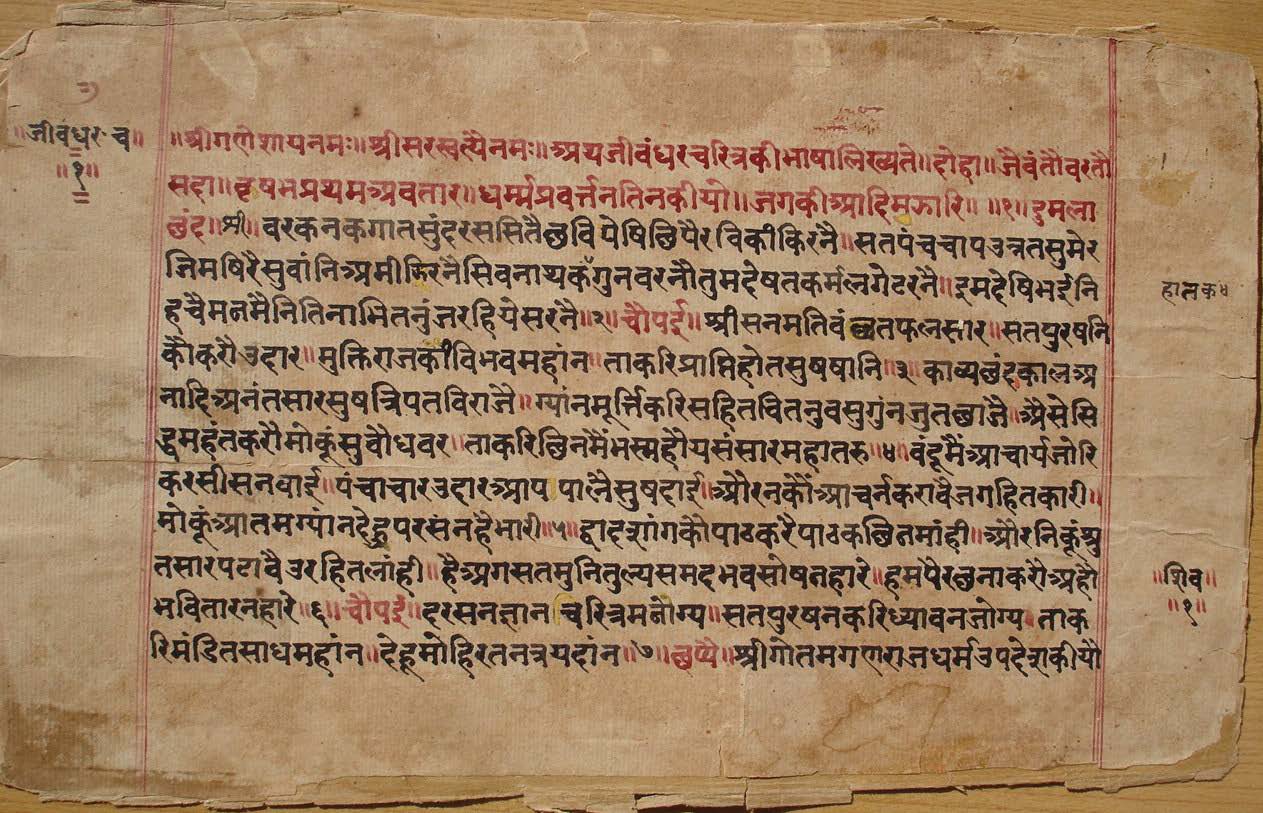 ॥जीवंधर च॥
॥१॥
॥श्रीगणेशायनमः॥श्रीसरस्वत्यैनमः॥अथजीवंधरचरित्रकीभाषालिख्यते॥दोहा॥जैवंतौवरतौ
सदा॥वृषभप्रथमअवतार॥धर्म्मप्रवर्त्तनतिनकीयो॥जगकीआदिमझारि॥॥१॥दुमला
छंद॥श्री॥वरकनकगातसुंदरससितैछविपेषिछिपैरविकीकिरनै॥सतपंचचापउन्नतसुमेर
हचैमनमैनितिनाभितनुंजरहियेसरनै॥२॥चौपई॥श्रीसनमतिवंछतफलसार॥सतपुरषनि
कौकरौउदार॥मुक्तिराजकीविभवमहांन॥ताकरिप्राप्तिहोतसुषषानि॥३॥काव्यछंदकालअ
नादिअनंतसारसुषत्रिपतविराजै॥ग्यांनमूर्त्तिकरिसहितचितनुवसुगुंनजुतछाजै॥अैसेसि
द्धमहंतकरौमोकूंसुवौधवर॥ताकरिछिनमैंभस्महौयसंसारमहातरु॥४॥वंदूमैंआचार्यजोरि
करसीसनवाई॥पंचाचारउदारआपपालैसुषदाई॥औरनकौंआचर्नकरावैजगहितकारी॥
मोकूंआतमग्यांनदेहुपरसंनहैभारी॥५॥द्वादशांगकौपाठकरैपाठकछितमांही॥औरनिकूंश्रु
तसारपढावैउरहितलांही॥हैअगसतमुनितुल्यसमदभवसोषतहारे॥हमपैरछनाकरौअहौ
भवितारनहारे॥६॥चौपई॥दरसनज्ञानचरित्रमनोग्य॥सतपुरषनकरिध्यावनजोग्य॥ताक
रिमंडितसाधमहांन॥देहूमोहिरतनत्रयदांन॥७॥छप्पै॥श्रीगोतमगणराजधर्मउपदेशकीयौ
॥शिव॥
॥१॥